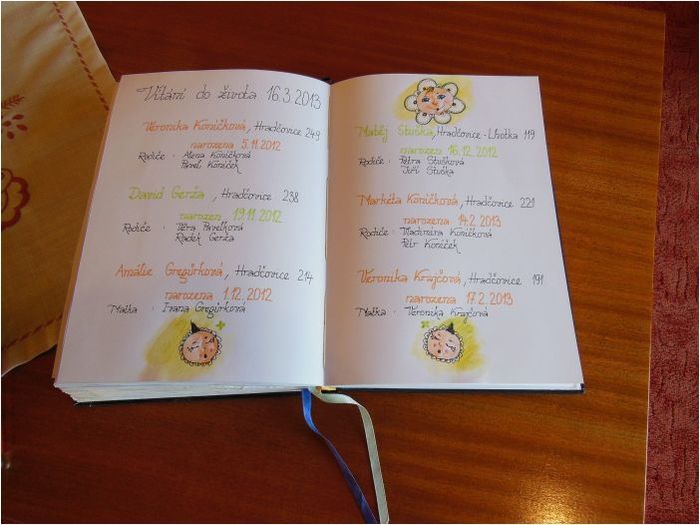 Vítání do života 16.3.2013
Veronika Koníčková, Hradčovice 249
narozena 5.11.2012
Rodiče : Alena Koníčková
Pavel Koníček
David Gerža, Hradčovice 238
narozen 19.11.2012
Rodiče : Věra Pavelková
Radek Gerža
Amálie Gregůrková, Hradčovice 214
narozena 1.12.2012
Matka : Ivana Gregůrková
Matěj Stuška, Hradčovice - Lhotka 119
narozen 16.12.2012
Rodiče : Petra Stušková
Jiří Stuška
Markéta Koníčková, Hradčovice 221
narozena 14.2.2013
Rodiče : Vladimíra Koníčková
Petr Koníček
Veronika Krajčová, Hradčovice 191
narozena 17.2.2013
Matka : Veronika Krajčová